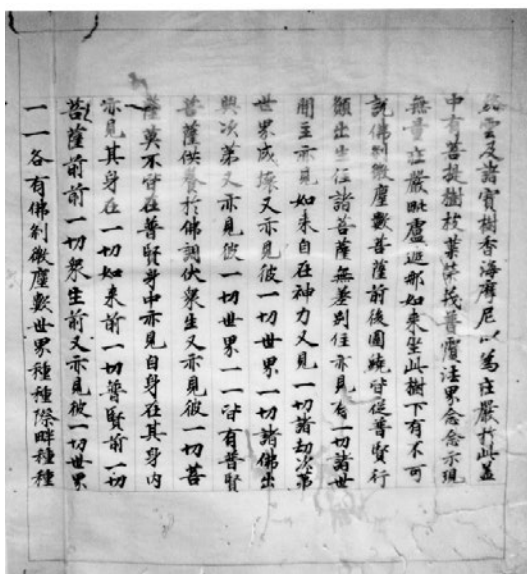 雲及諸寶樹香海摩尼以為莊嚴於此蓋
中有菩提樹枝葉榮茂普覆法界念念示現
無量莊嚴毗盧遮那如来坐此樹下有不可
說佛剎微塵數菩薩前後圍繞皆從普賢行
願出生住諸菩薩無差別住亦見有一切諸世
間主亦見如来自在神力又見一切諸劫次第
世界成壞又亦見彼一切世界一切諸佛出
興次第又亦見彼一切世界一一皆有普賢
菩薩供養於佛調伏衆生又亦見彼一切菩
薩莫不皆在普賢身中亦見自身在其身內
亦見其身在一切如来前一切普賢前一切
菩薩前前一切衆生前又亦見彼一切世界
一一各有佛剎微塵數世界種種際畔種種